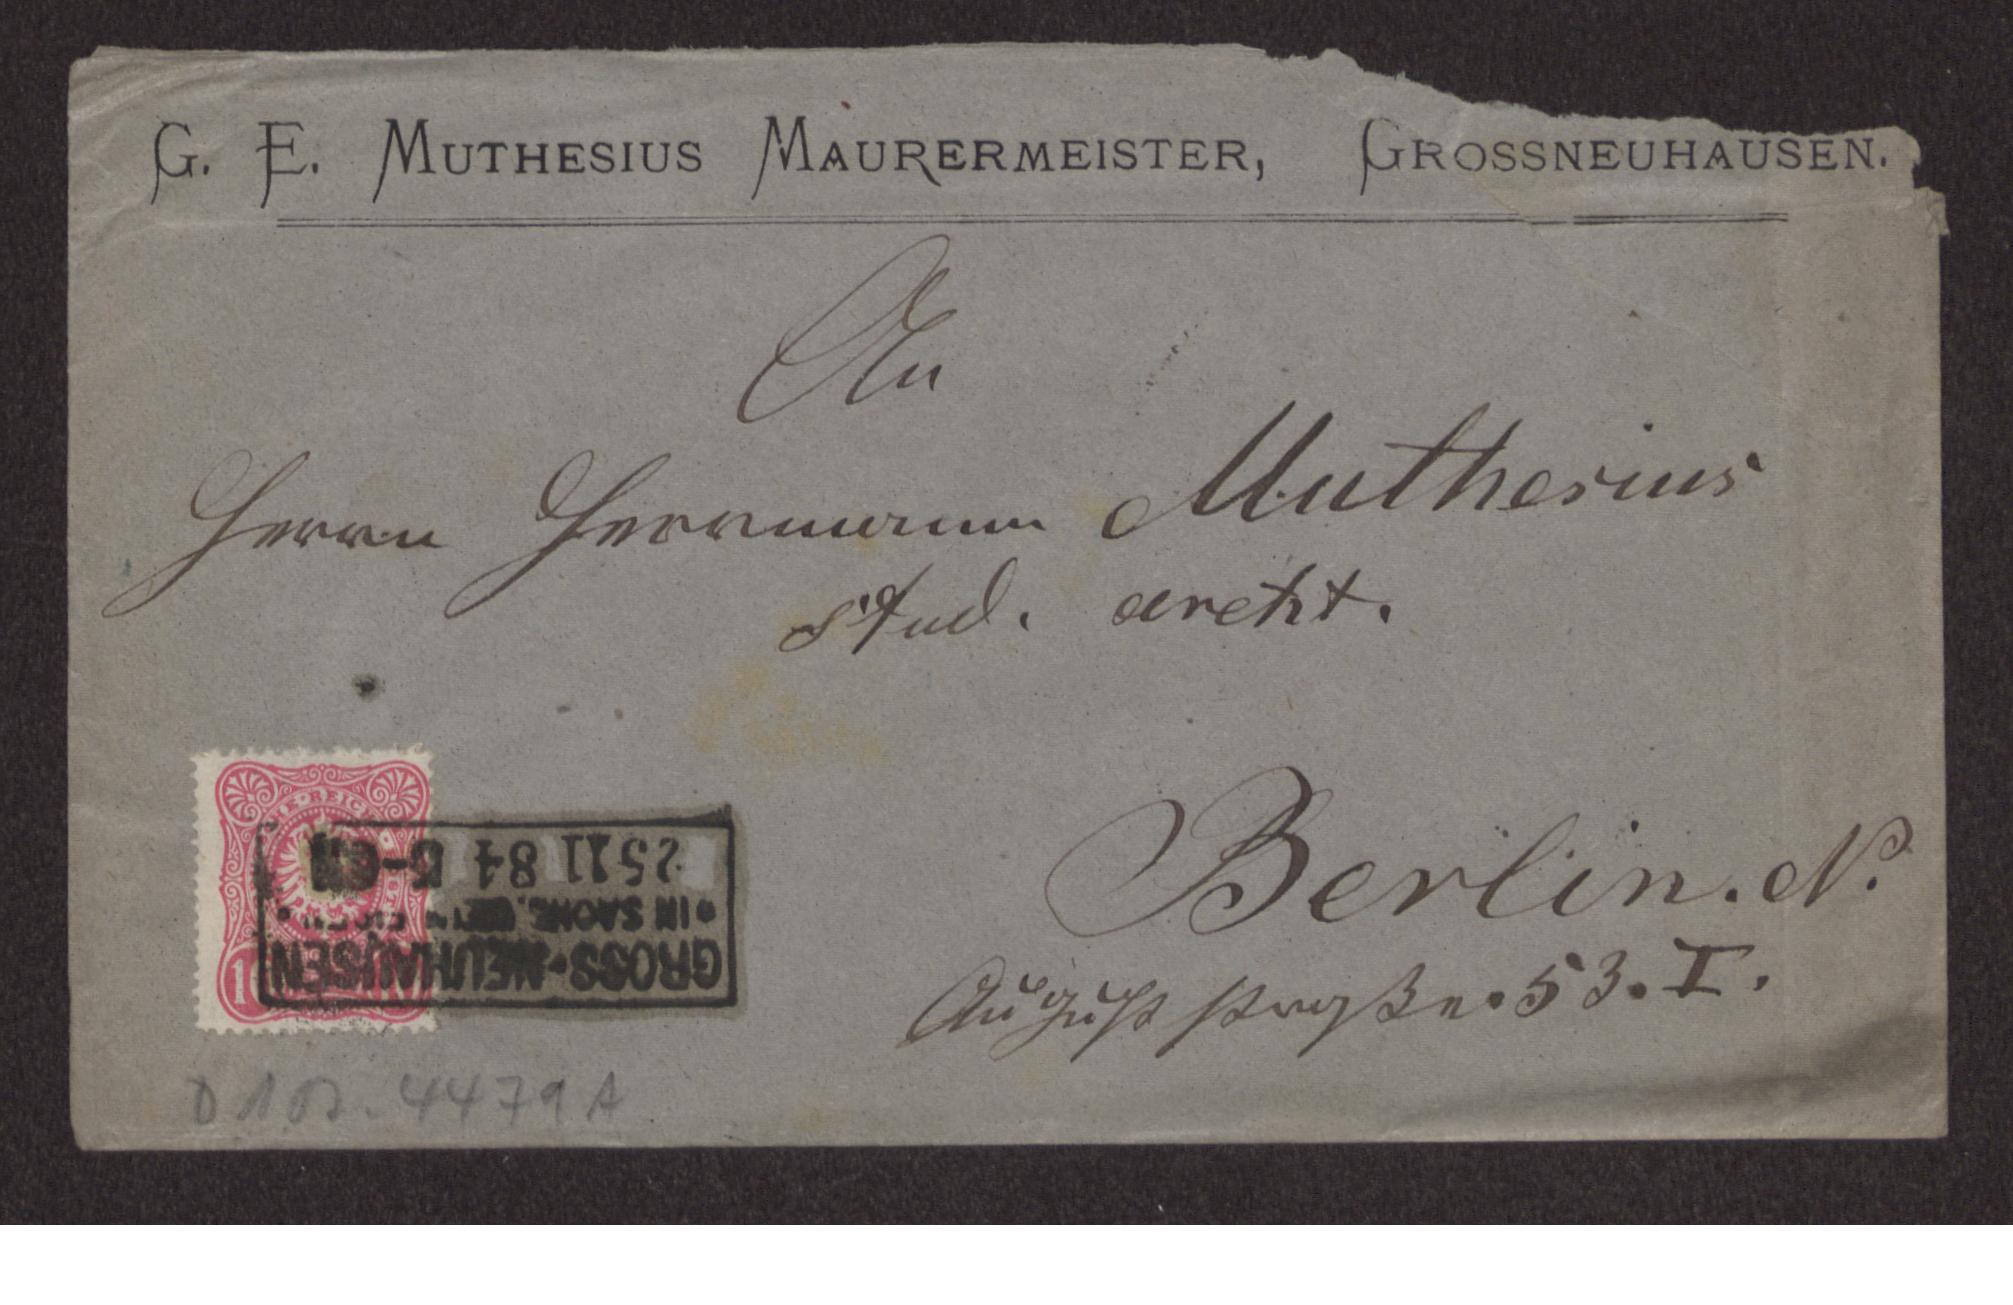 G. E. MUTHESIUS MAURERMEISTER, GROSSNEUHAUSEN.
An
Herrn Herrmann Muthesius
stud. archt.
Berlin. N.
Auguststraße. 53. I.
GROSS-NEUHAUSEN
* IN SACHS.
25 11 84 5-6N
HE REICH
1
4479 A